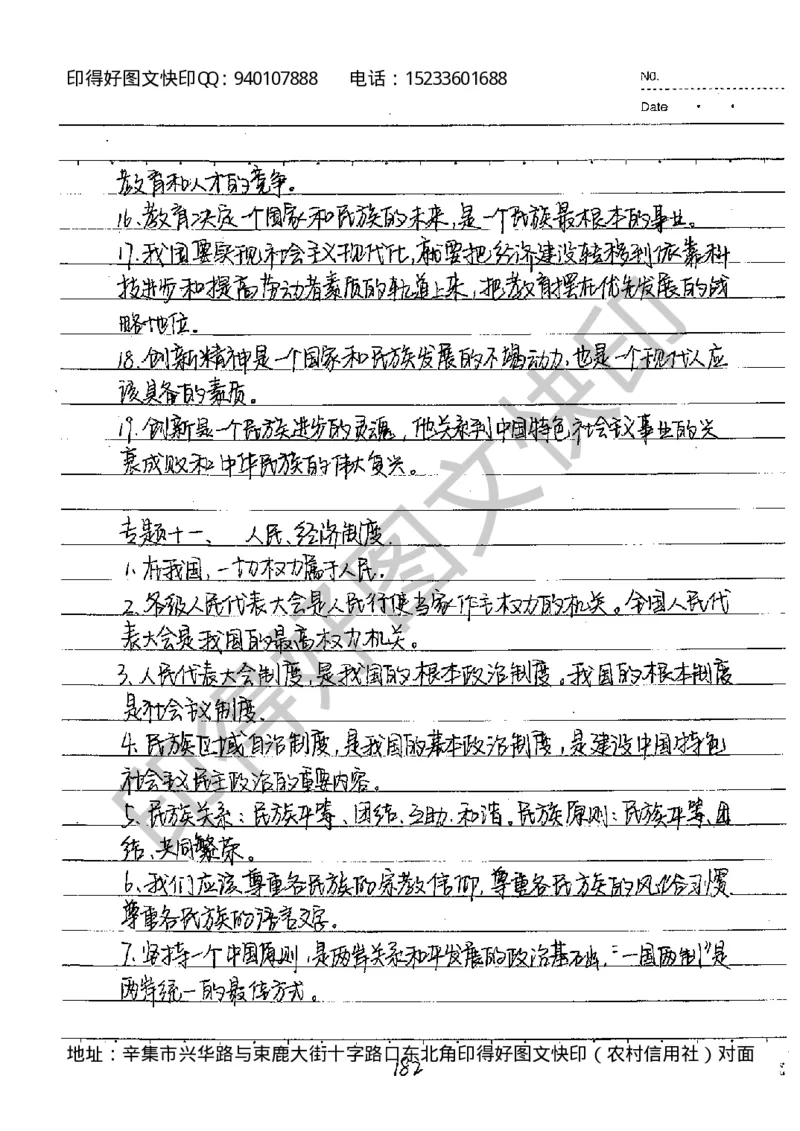 印得好图文快印QQ：940107888 电话：15233601688
No.
Date
教育和人才的竞争。
16、教育决定一个国家和民族的未来，是一个民族最根本的事业。
17、我国要实现社会主义现代化，就要把经济建设转移到依靠科
技进步和提高劳动者素质的轨道上来，把教育摆在优先发展的战
略地位。
18、创新精神是一个国家和民族发展的不竭动力，也是一个现代人应
该具备的素质。
19、创新是一个民族进步的灵魂，他关系到中国特色社会主义事业的兴
衰成败和中华民族的伟大复兴。
专题十一、 人民、经济制度．
1、在我国，一切权力属于人民．
2、各级人民代表大会是人民行使当家作主权力的机关。全国人民代
表大会是我国的最高权力机关。
3、人民代表大会制度，是我国的根本政治制度。我国的根本制度
是社会主义制度．
4、民族区域自治制度，是我国的基本政治制度，是建设中国特色
社会主义民主政治的重要内容。
5、民族关系：民族平等、团结、互助、和谐。民族原则：民族平等、团
结、共同繁荣。
6、我们应该尊重各民族的宗教信仰，尊重各民族的风俗习惯．
尊重各民族的语言文字。
7、坚持一个中国原则，是两岸关系和平发展的政治基础，“一国两制”是
两岸统一的最佳方式。
地址：辛集市兴华路与束鹿大街十字路口东北角印得好图文快印（农村信用社）对面
182
印得好图文快印